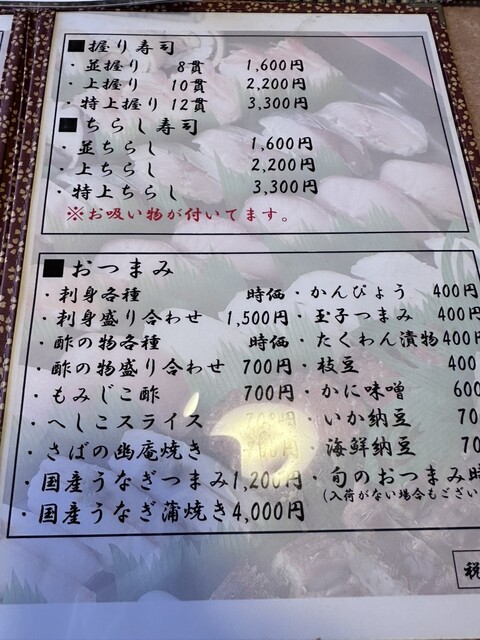 ■握り寿司
・並握り 8貫 1,600円
・上握り 10貫 2,200円
・特上握り 12貫 3,300円
■ちらし寿司
・並ちらし 1,600円
・上ちらし 2,200円
・特上ちらし 3,300円
※お吸い物が付いてます。
■おつまみ
・刺身各種 時価
・刺身盛り合わせ 1,500円
・酢の物各種 時価
・酢の物盛り合わせ 700円
・もみじこ酢 700円
・へしこスライス
・さばの幽庵焼き
・国産うなぎつまみ 1,200円
・国産うなぎ蒲焼き 4,000円
・かんぴょう 400円
・玉子つまみ 400円
・たくわん漬物 400円
・枝豆 400
・かに味噌 600
・いか納豆 70
・海鮮納豆 70
・旬のおつまみ 時
(入荷がない場合もござい
税